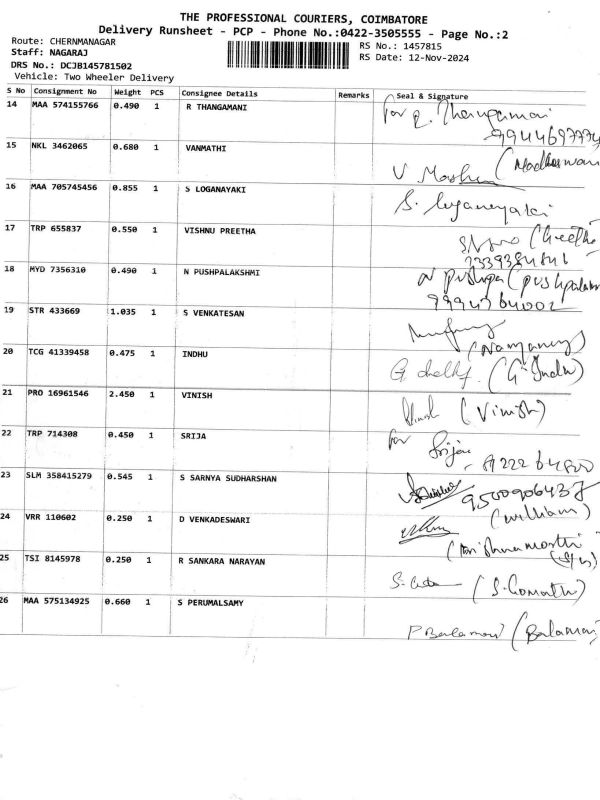 THE PROFESSIONAL COURIERS, COIMBATORE
Delivery Runsheet - PCP - Phone No.:0422-3505555 - Page No.:2
Route: CHERNMANAGAR
Staff: NAGARAJ
DRS No.: DCJB145781502
Vehicle: Two Wheeler Delivery
RS No.: 1457815
RS Date: 12-Nov-2024
S No Consignment No Weight PCS Consignee Details Remarks Seal & Signature
14 MAA 574155766 0.490 1 R THANGAMANI
for R. Thangamani
15 NKL 3462065 0.680 1 VANMATHI
16 MAA 705745456 0.855 1 S LOGANAYAKI
S. loganayaki
17 TRP 655837 0.550 1 VISHNU PREETHA
18 MYD 7356310 0.490 1 N PUSHPALAKSHMI
N pushpa
19 STR 433669 1.035 1 S VENKATESAN
20 TCG 41339458 0.475 1 INDHU
(G. Indhu)
21 PRO 16961546 2.450 1 VINISH
Vinish (Vinish)
22 TRP 714308 0.450 1 SRIJA
for Srija
23 SLM 358415279 0.545 1 S SARNYA SUDHARSHAN
9500906437
(william)
24 VRR 110602 0.250 1 D VENKADESWARI
25 TSI 8145978 0.250 1 R SANKARA NARAYAN
(S. Gomathi)
26 MAA 575134925 0.660 1 S PERUMALSAMY
P Balamani (Balamani